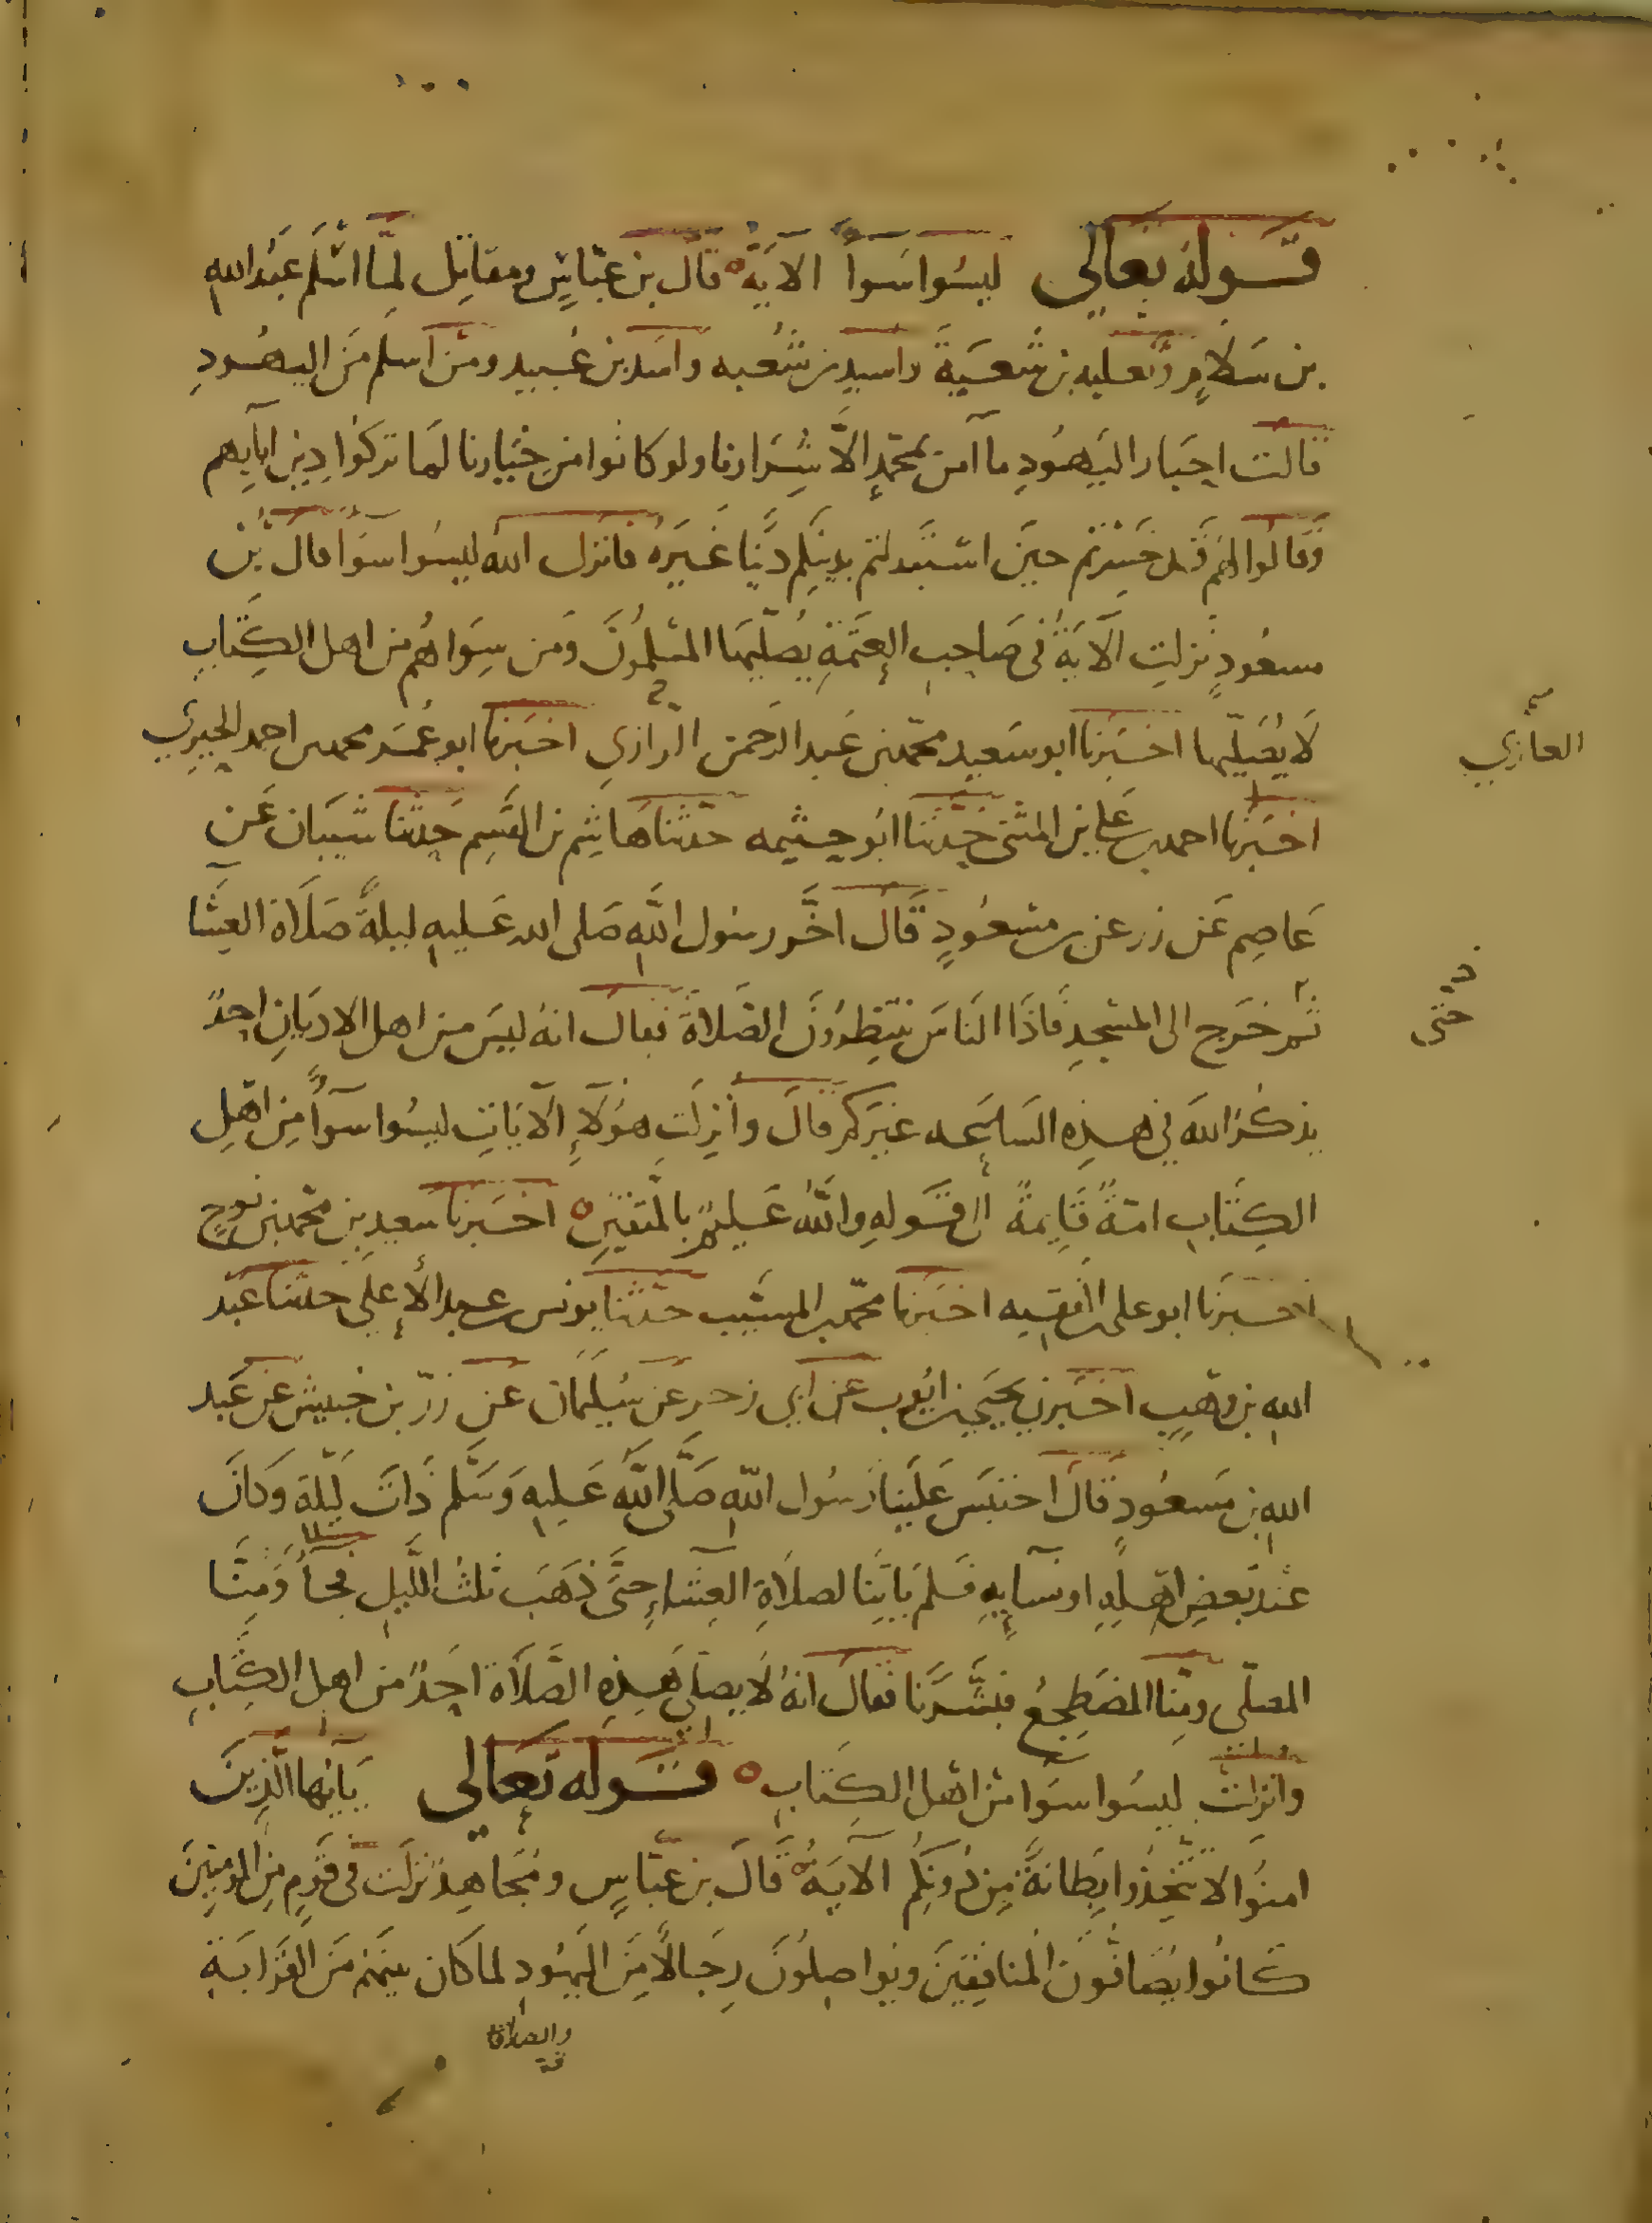 قوله تعالى ليسوا سوآء الآية قال بن عباس ومقاتل لما اسلم عبد الله
بن سلام وثعلبه بن شعبة واسيد بن شعبه واسد بن عبيد ومن اسلم من اليهود
قالت احبار اليهود ما آمن بمحمد الا شرارنا ولو كانوا من خيارنا لما تركوا دين ابايهم
وقالوا لهم قد خسرتم حين استبدلتم بدينكم دينا غيره فانزل الله ليسوا سوآ قال بن
مسعود نزلت الآية في صاحب العتمة يصليها المسلمون ومن سواهم من اهل الكتاب
لا يصليها اخبرنا ابو سعيد محمد بن عبد الرحمن الرازي اخبرنا ابو عمر محمد بن احمد الحيري
الغازي
اخبرنا احمد بن علي بن المثنى حدثنا ابو خيثمه حدثنا هاشم بن القسم حدثنا شيبان عن
عاصم عن زر عن بن مسعود قال اخر رسول الله صلى الله عليه ليلة صلاة العشا
ثم خرج الى المسجد فاذا الناس ينتظرون الصلاة فقال انه ليس من اهل الاديان احد
حتى
يذكر الله في هذه الساعه غيركم قال وانزلت هؤلاء الآيات ليسوا سوآء من اهل
الكتاب امة قايمة الى قوله والله عليم بالمتقين اخبرنا سعيد بن محمد بن نوح
اخبرنا ابو علي الفقيه اخبرنا محمد بن المسيب حدثنا يونس بن عبد الأعلى حدثنا عبد
الله بن وهب اخبرني يحيى بن ايوب عن ابي زحر عن سليمان عن زر بن حبيش عن عبد
الله بن مسعود قال احتبس علينا رسول الله صلى الله عليه وسلم ذات ليلة وكان
عند بعض اهله او نسآيه فلم ياتنا لصلاة العشاء حتى ذهب ثلث الليل فجآء ومنا
المصلي ومنا المضطجع فبشرنا فقال انه لا يصلي هذه الصلاة احد من اهل الكتاب
وانزلت ليسوا سوآ من اهل الكتاب قوله تعالى يايها الذين
امنوا لا تتخذوا بطانة من دونكم الآية قال بن عباس ومجاهد نزلت في قوم من المومنين
كانوا يصافون المنافقين ويواصلون رجالا من اليهود لما كان بينهم من القرابة
والصداقة